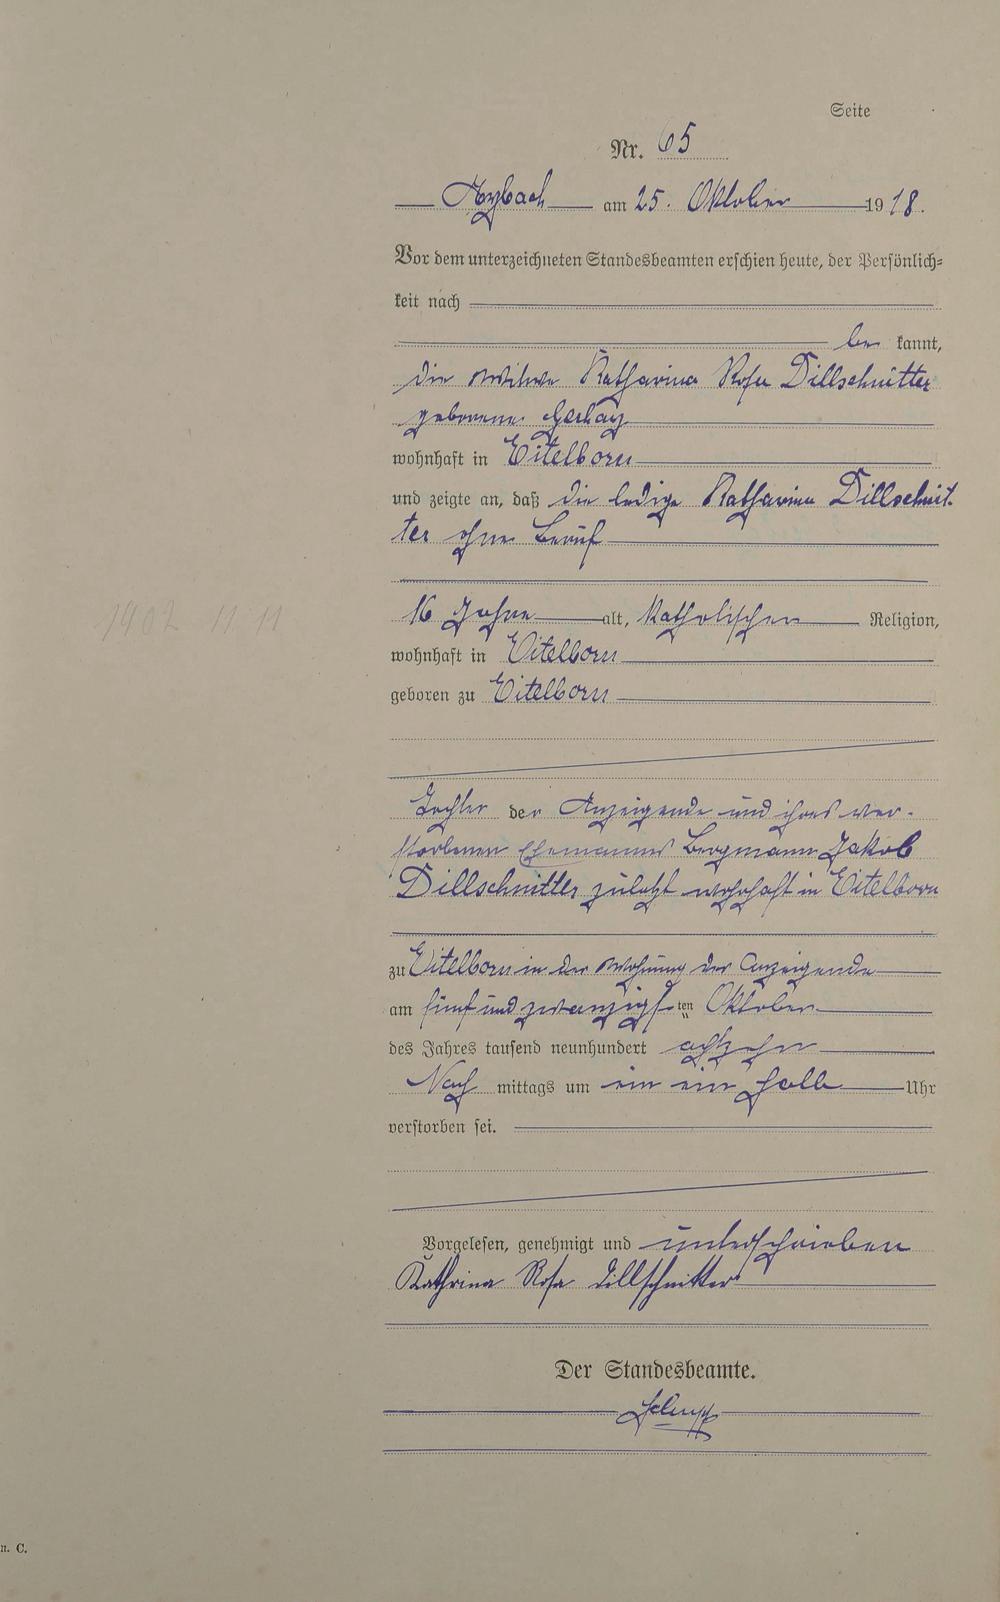 Seite
Nr. 65
Arzbach am 25. Oktober 1918.
Vor dem unterzeichneten Standesbeamten erschien heute, der Persönlich=
keit nach
be kannt,
die Witwe Katharina Rosa Dillschnitter
geborene
wohnhaft in Eitelborn
und zeigte an, daß die ledige Katharina Dillschnit-
ter ohne Beruf
1902 11 11
16 Jahre alt, katholischen Religion,
wohnhaft in Eitelborn
geboren zu Eitelborn
Tochter der Anzeigende und ihres ver-
storbenen Ehemannes Bergmann Jakob
Dillschnitter zuletzt wohnhaft in Eitelborn
zu Eitelborn in der Wohnung der Anzeigende
am fünfundzwanzigsten Oktober
des Jahres tausend neunhundert achtzehn
Nach mittags um ein ein halb Uhr
verstorben sei.
Vorgelesen, genehmigt und unterschrieben
Kathrina Rosa Dillschnitter
Der Standesbeamte.
n. C.